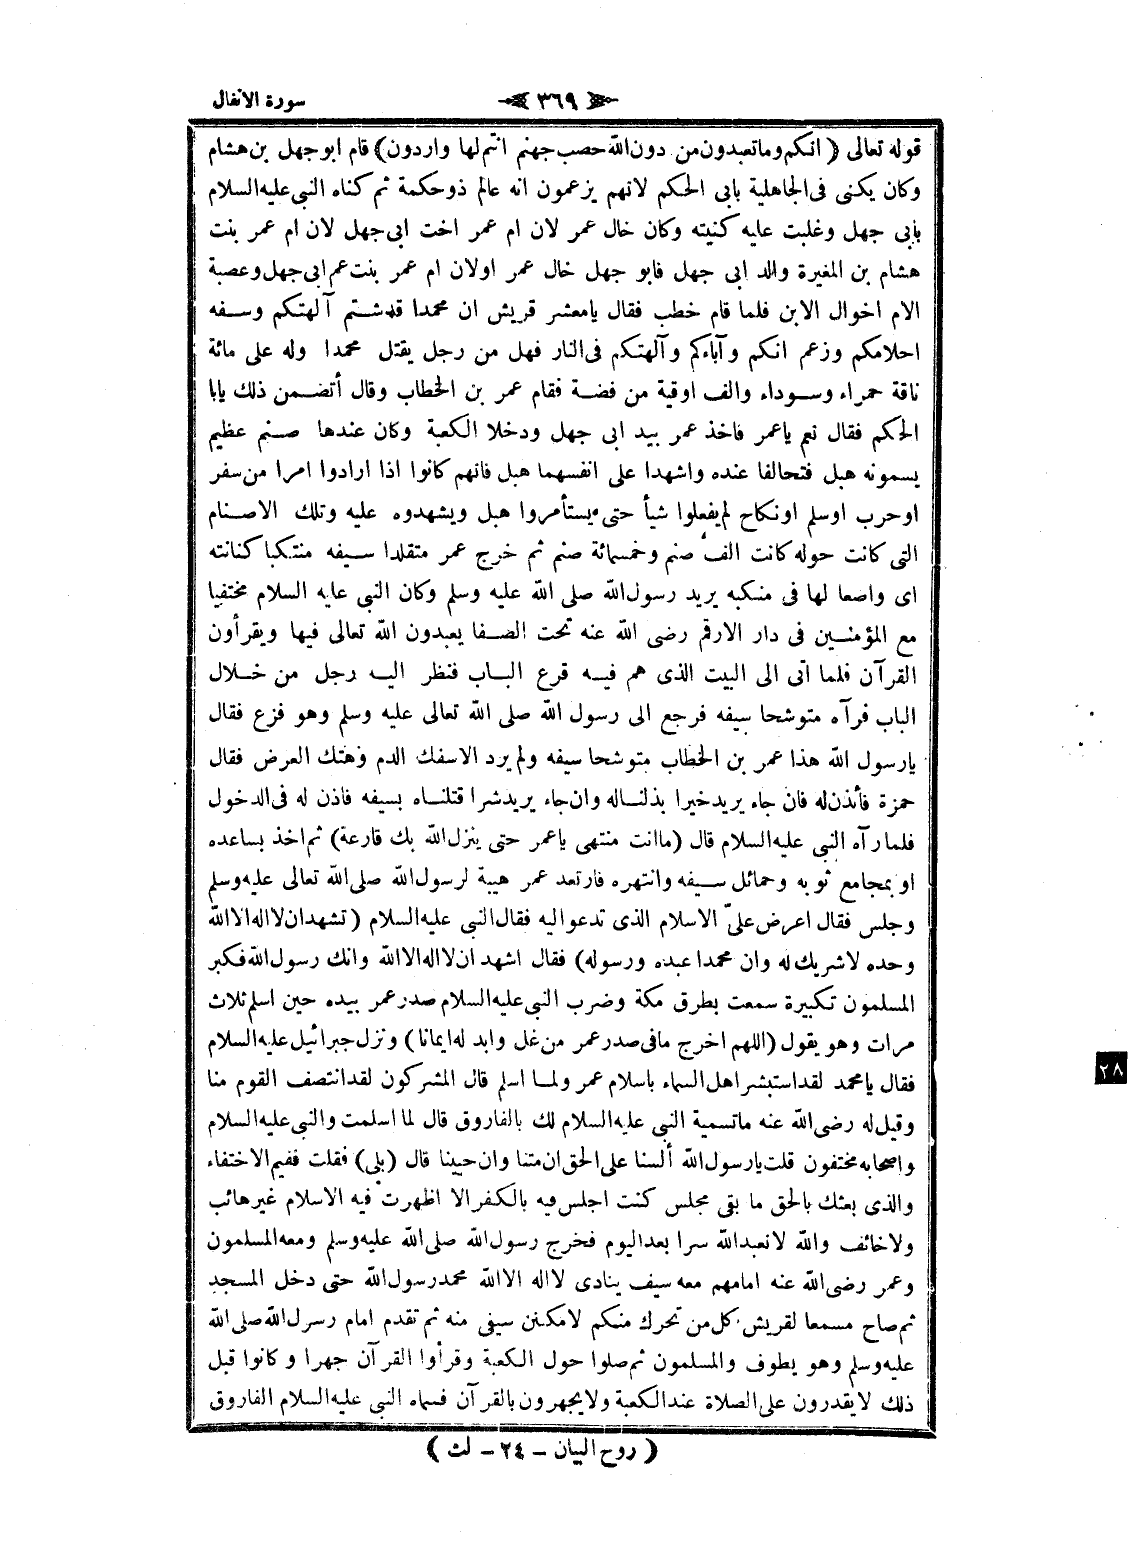 سورة الانفال ٣٦٩
قوله تعالى ( انكم وما تعبدون من دون الله حصب جهنم انتم لها واردون ) قام ابو جهل بن هشام
وكان يكنى فى الجاهلية بابى الحكم لانهم يزعمون انه عالم ذو حكمة ثم كناه النبى عليه السلام
بابى جهل وغلبت عليه كنيته وكان خال عمر لان ام عمر اخت ابى جهل لان ام عمر بنت
هشام بن المغيرة والد ابى جهل فابو جهل خال عمر اولان ام عمر بنت عم ابى جهل وعصبة
الام اخوال الابن فلما قام خطب فقال يا معشر قريش ان محمدا قد شتم آلهتكم وسفه
احلامكم وزعم انكم وآباءكم وآلهتكم فى النار فهل من رجل يقتل محمدا وله على مائة
ناقة حمراء وسوداء والف اوقية من فضة فقام عمر بن الخطاب وقال أتضمن ذلك يابا
الحكم فقال نعم ياعمر فاخذ عمر بيد ابى جهل ودخلا الكعبة وكان عندها صنم عظيم
يسمونه هبل فتحالفا عنده واشهدا على انفسهما هبل فانهم كانوا اذا ارادوا امرا من سفر
او حرب اوسلم اونكاح لم يفعلوا شيأ حتى يستأمروا هبل ويشهدوه عليه وتلك الاصنام
التى كانت حوله كانت الف صنم وخمسمائة صنم ثم خرج عمر متقلدا سيفه منتكبا كنانته
اى واضعا لها فى منكبه يريد رسول الله صلى الله عليه وسلم وكان النبى عليه السلام مختفيا
مع المؤمنين فى دار الارقم رضى الله عنه تحت الصفا يعبدون الله تعالى فيها ويقرأون
القرآن فلما اتى الى البيت الذى هم فيه قرع الباب فنظر اليه رجل من خلال
الباب فرآه متوشحا سيفه فرجع الى رسول الله صلى الله تعالى عليه وسلم وهو فزع فقال
يارسول الله هذا عمر بن الخطاب متوشحا سيفه ولم يرد الاسفك الدم وهتك العرض فقال
حمزة فأئذن له فان جاء يريد خيرا بذلناله وان جاء يريد شرا قتلناه بسيفه فاذن له فى الدخول
فلما رآه النبى عليه السلام قال (ماانت منتهى ياعمر حتى ينزل الله بك قارعة) ثم اخذ بساعده
او بمجامع ثوبه وحمائل سيفه وانتهره فارتعد عمر هيبة لرسول الله صلى الله تعالى عليه وسلم
وجلس فقال اعرض علىّ الاسلام الذى تدعو اليه فقال النبى عليه السلام (تشهد ان لااله الاالله
وحده لاشريك له وان محمدا عبده ورسوله) فقال اشهد ان لااله الاالله وانك رسول الله فكبر
المسلمون تكبيرة سمعت بطرق مكة وضرب النبى عليه السلام صدر عمر بيده حين اسلم ثلاث
مرات وهو يقول (اللهم اخرج مافى صدر عمر من غل وابد له ايمانا) ونزل جبرائيل عليه السلام
فقال يا محمد لقد استبشر اهل السماء باسلام عمر ولما اسلم قال المشركون لقد انتصف القوم منا
وقيل له رضى الله عنه ماتسمية النبى عليه السلام لك بالفاروق قال لما اسلمت والنبى عليه السلام
واصحابه مختفون قلت يارسول الله ألسنا على الحق ان متنا وان حيينا قال (بلى) فقلت ففيم الاختفاء
والذى بعثك بالحق ما بقى مجلس كنت اجلس فيه بالكفر الا اظهرت فيه الاسلام غير هائب
ولاخائف والله لانعبد الله سرا بعد اليوم فخرج رسول الله صلى الله عليه وسلم ومعه المسلمون
وعمر رضى الله عنه امامهم معه سيف ينادى لااله الاالله محمد رسول الله حتى دخل المسجد
ثم صاح مسمعا لقريش كل من تحرك منكم لامكنن سيفى منه ثم تقدم امام رسول الله صلى الله
عليه وسلم وهو يطوف والمسلمون ثم صلوا حول الكعبة وقرأوا القرآن جهرا وكانوا قبل
ذلك لايقدرون على الصلاة عند الكعبة ولايجهرون بالقرآن فسماه النبى عليه السلام الفاروق
( روح البيان – ٢٤ – لث )
٢٨